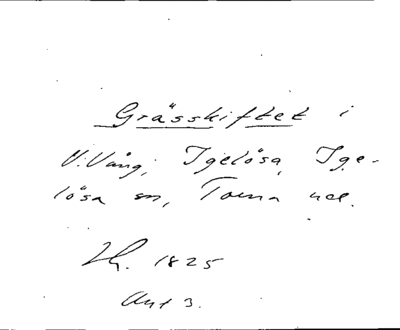 Grässkiftet i
V. Vång, Igelösa, Ige-
lösa sn, Torna hd.
1825
3.